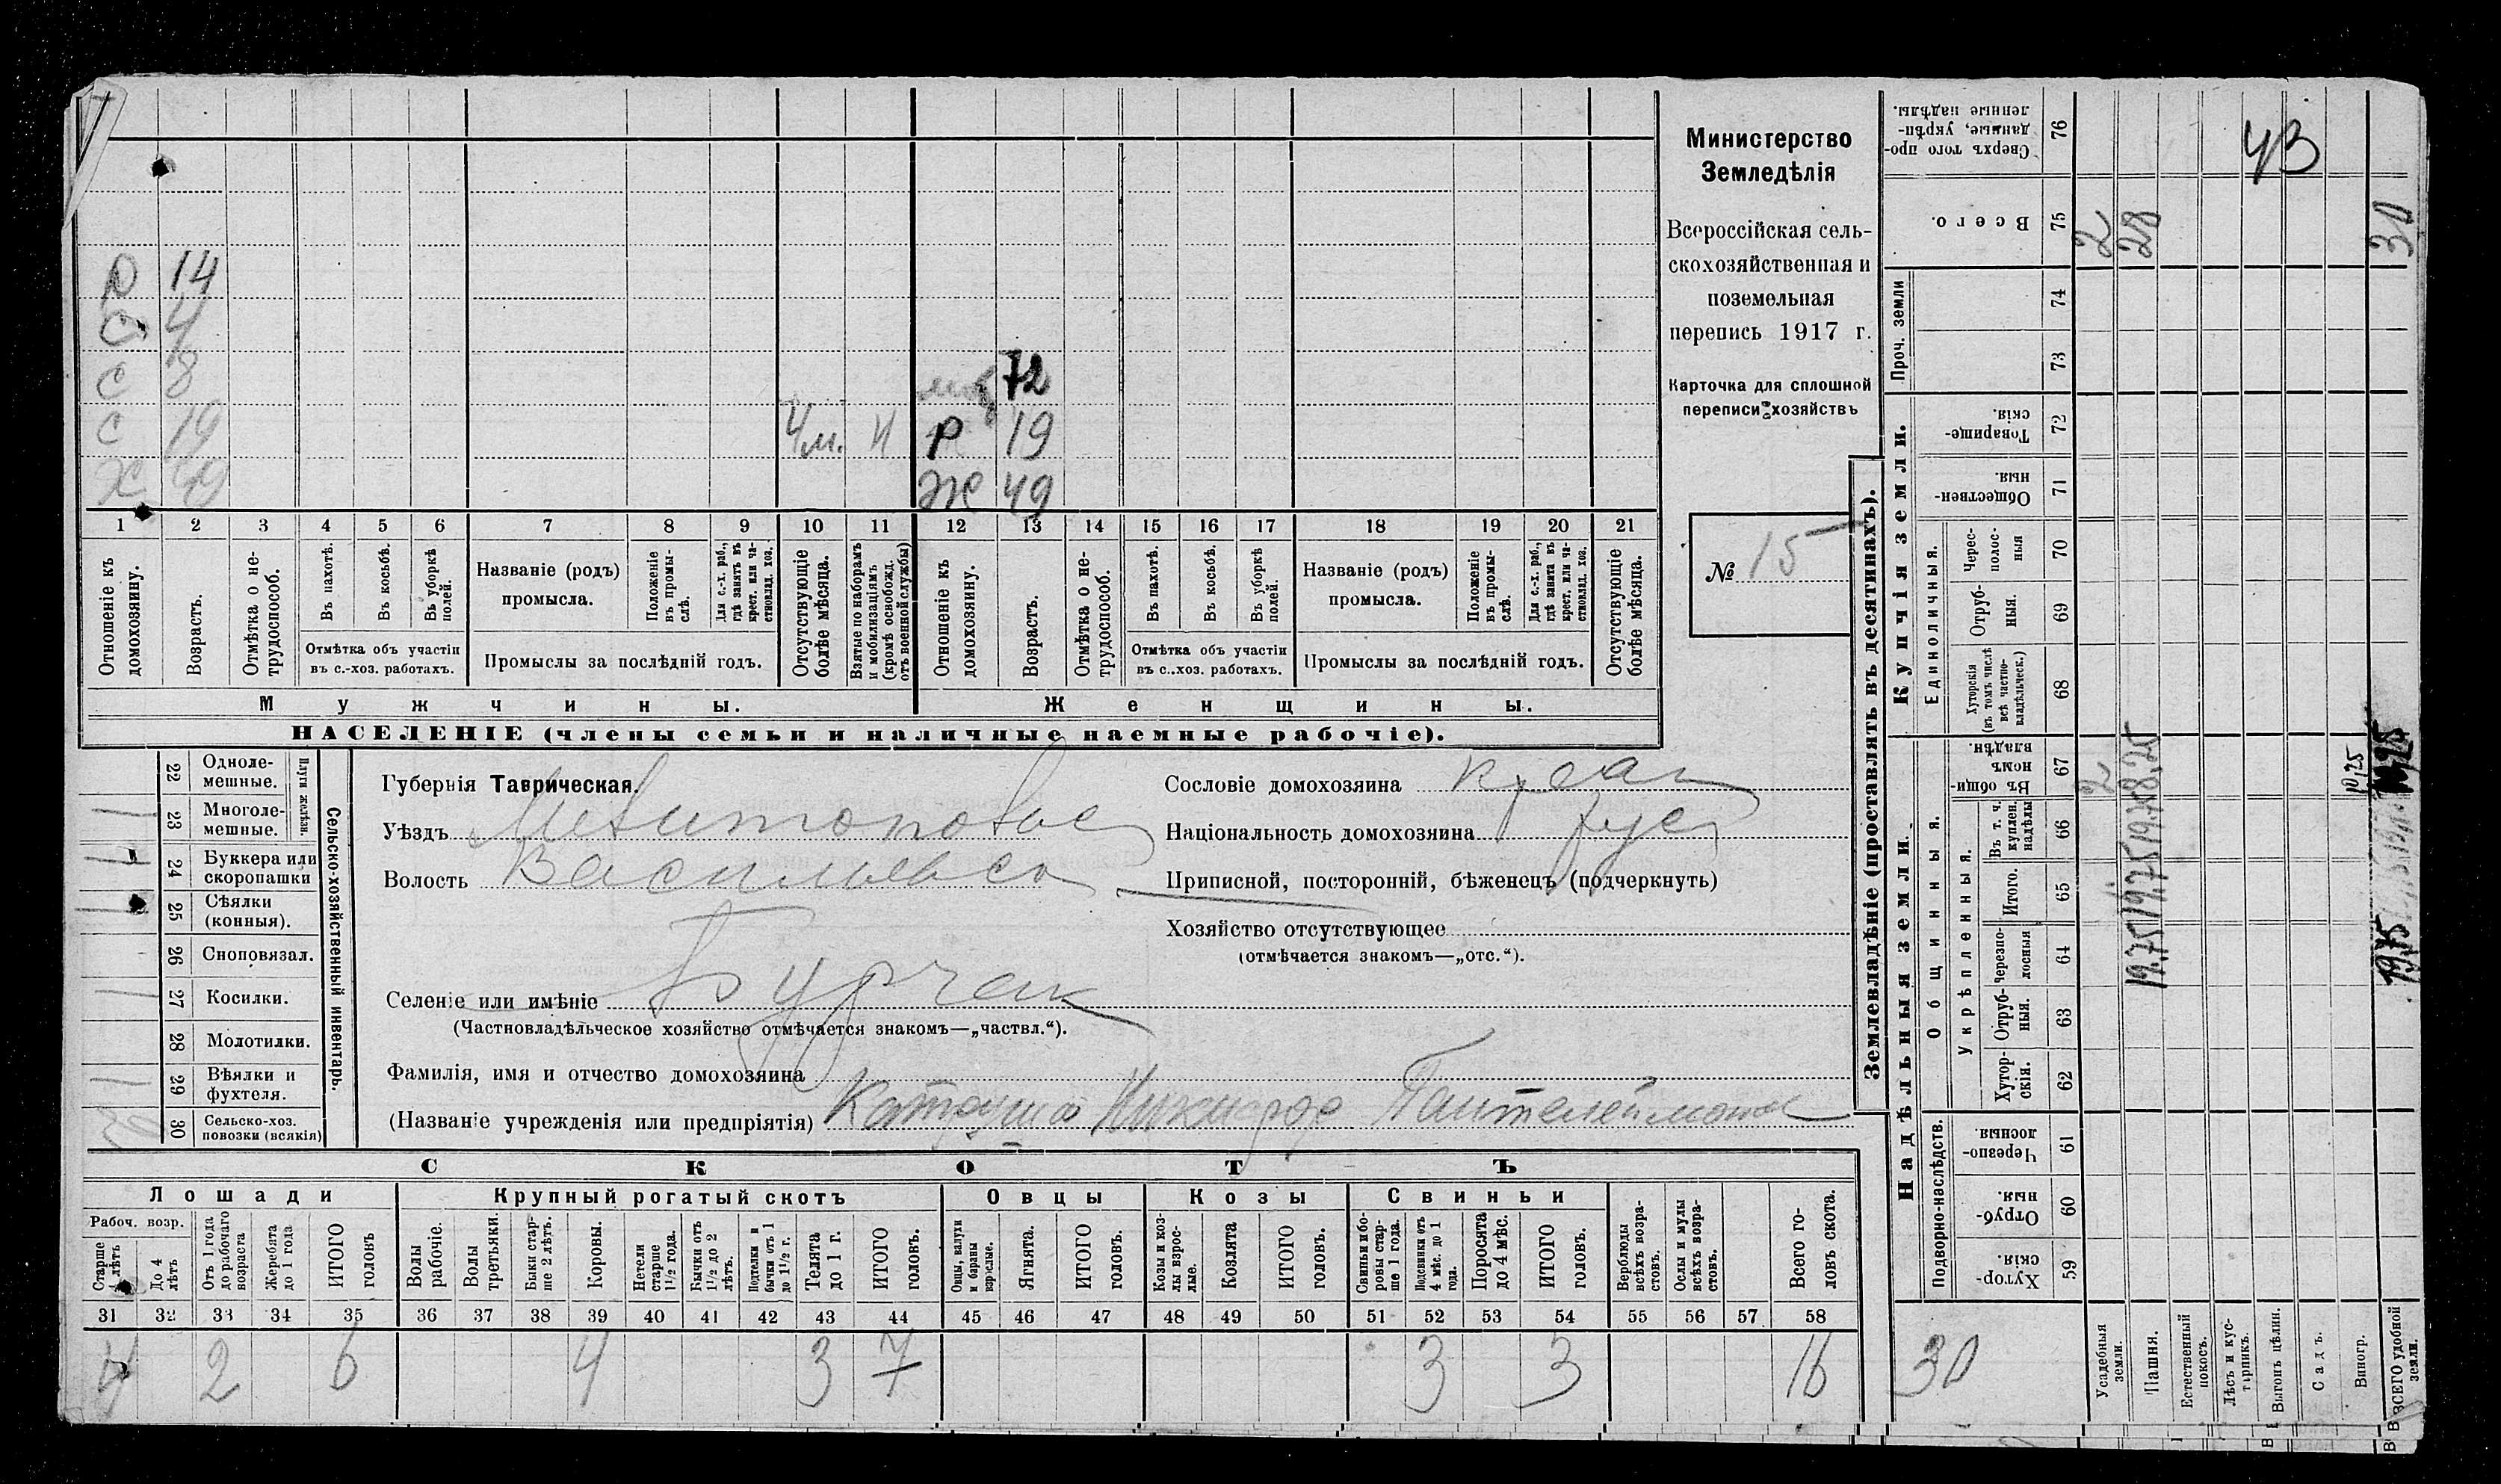 Министерство
Земледѣлія
Всероссійская сель-
скохозяйственная и
поземельная
перепись 1917 г.
Карточка для сплошной
переписи хозяйствъ
№ 15
Р 14
С 4
С 8 72
С 19 4м. Р 19
Ж 49 Ж 49
1 2 3 4 5 6 7 8 9 10 11 12 13 14 15 16 17 18 19 20 21
Отношеніе къ домохозяину.
Возрастъ.
Отмѣтка о не-трудоспособ.
Въ пахотѣ.
Въ косьбѣ.
Въ уборкѣ полей.
Отмѣтка объ участіи
въ с.-хоз. работахъ.
Названіе (родъ)
промысла.
Положеніе въ промы-слѣ.
Для с.-х. раб., гдѣ занятъ въ крест. или ча-стновлад. хоз.
Промыслы за послѣдній годъ.
Отсутствующіе болѣе мѣсяца.
Взятые по наборамъ и мобилизаціямъ (кромѣ освобожд. отъ военной службы)
Отношеніе къ домохозяину.
Возрастъ.
Отмѣтка о не-трудоспособ.
Въ пахотѣ.
Въ косьбѣ.
Въ уборкѣ полей.
Отмѣтка объ участіи
въ с..хоз. работахъ.
Названіе (родъ)
промысла.
Положеніе въ промы-слѣ.
Для с.-х. раб., гдѣ занята въ крест. или ча-стновлад. хоз.
Промыслы за послѣдній годъ.
Отсутствующіе болѣе мѣсяца.
Мужчины. Женщины.
НАСЕЛЕНІЕ (члены семьи и наличные наемные рабочіе).
Сельско-хозяйственный инвентарь.
Плуги желѣзн.
22 Одноле-мешные.
23 Многоле-мешные.
24 Буккера или скоропашки
25 Сѣялки (конныя).
26 Сноповязал.
27 Косилки.
28 Молотилки.
29 Вѣялки и фухтеля.
30 Сельско-хоз. повозки (всякія)
Губернія Таврическая.
Уѣздъ Мелитопольс
Волость Васильевс
Селеніе или имѣніе Бурчак
(Частновладѣльческое хозяйство отмѣчается знакомъ—„частвл.“).
Фамилія, имя и отчество домохозяина
(Названіе учрежденія или предпріятія) Пантелеймонов
Сословіе домохозяина крест
Національность домохозяина рус
Приписной, посторонній, бѣженецъ (подчеркнуть)
Хозяйство отсутствующее
(отмѣчается знакомъ—„отс.“).
СКОТЪ
Лошади Крупный рогатый скотъ Овцы Козы Свиньи
Рабоч. возр.
Старше 4 лѣтъ
До 4 лѣтъ
Отъ 1 года до рабочаго возраста
Жеребята до 1 года
ИТОГО головъ
Волы рабочіе.
Волы третьяки.
Быки стар-ше 2 лѣтъ.
Коровы.
Нетели старше 1 1/2 года.
Бычки отъ 1 1/2 до 2 лѣтъ.
Подтелки и бычки отъ 1 до 1 1/2 г.
Телята до 1 г.
ИТОГО головъ.
Овцы, валухи и бараны взрослые.
Ягнята.
ИТОГО головъ.
Козы и коз-лы взрос-лые.
Козлята
ИТОГО головъ.
Свиньи и бо-ровы стар-ше 1 года.
Подсвинки отъ 4 мѣс. до 1 года.
Поросята до 4 мѣс.
ИТОГО головъ.
Верблюды всѣхъ возра-стовъ.
Ослы и мулы всѣхъ возра-стовъ.
Всего го-ловъ скота.
31 32 33 34 35 36 37 38 39 40 41 42 43 44 45 46 47 48 49 50 51 52 53 54 55 56 57 58
4 2 6 4 3 7 3 3 16
Землевладѣніе (проставлять въ десятинахъ).
Купчія земли.
Надѣльныя земли.
76 Сверхъ того про-данные, укрѣп-ленные надѣлы.
75 Всего.
Проч. земли
74
73
72 Товарище-скія.
71 Обществен-ныя.
Единоличныя.
70 Черес-полос-ныя
69 Отруб-ныя.
68 Хуторскія (въ томъ числѣ всѣ частно-владѣльческ.)
Общинныя.
67 Въ общи-номъ владѣн.
Укрѣпленныя.
66 Въ т. ч. куплен. надѣлы
65 Итого.
64 Черезпо-лосныя
63 Отруб-ныя.
62 Хутор-скія.
Подворно-наслѣдств.
61 Черезпо-лосныя.
60 Отруб-ныя.
59 Хутор-скія.
Усадебныя земли.
Пашня.
Естественный покосъ.
Лѣсъ и кус-тарникъ.
Выгонъ цѣлин.
Садъ.
Виногр.
ВСЕГО удобной земли.
43
2
28
30
2
8,25
10,25
19,75
19,75
30